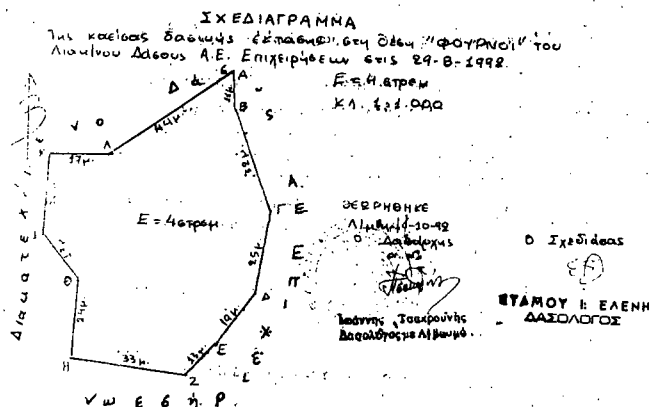 ΣΧΕΔΙΑΓΡΑΜΜΑ
της καείσας δασικής έκτασης στη θέση "ΦΟΥΡΝΟΙ" του
Λιακίνου Δάσους Α.Ε. Επιχειρήσεων στις 29-8-1992.
Ε = 4 στρεμ
ΚΛ. 1:1.000
Δ ά σ
ν ο
44μ
Α
11μ
Β
ς
Λ
17μ.
Κ
Ε = 4 στρεμ
Α.
Γ
Ε
Ε
Π
Ι
Χ
Ε
25μ
Δ
19μ
Ε
13μ
Ζ
33μ
Η
24μ
Θ
Ι
Διακατεχ
ν ω ε σ ή ρ
ΘΕΩΡΗΘΗΚΕ
-10-92
Ο Δασάρχης
Ιωάννης Τσακρούνης
Δασολόγος με Α βαθμό
Ο Σχεδιάσας
ΣΤΑΜΟΥ Ι. ΕΛΕΝΗ
ΔΑΣΟΛΟΓΟΣ